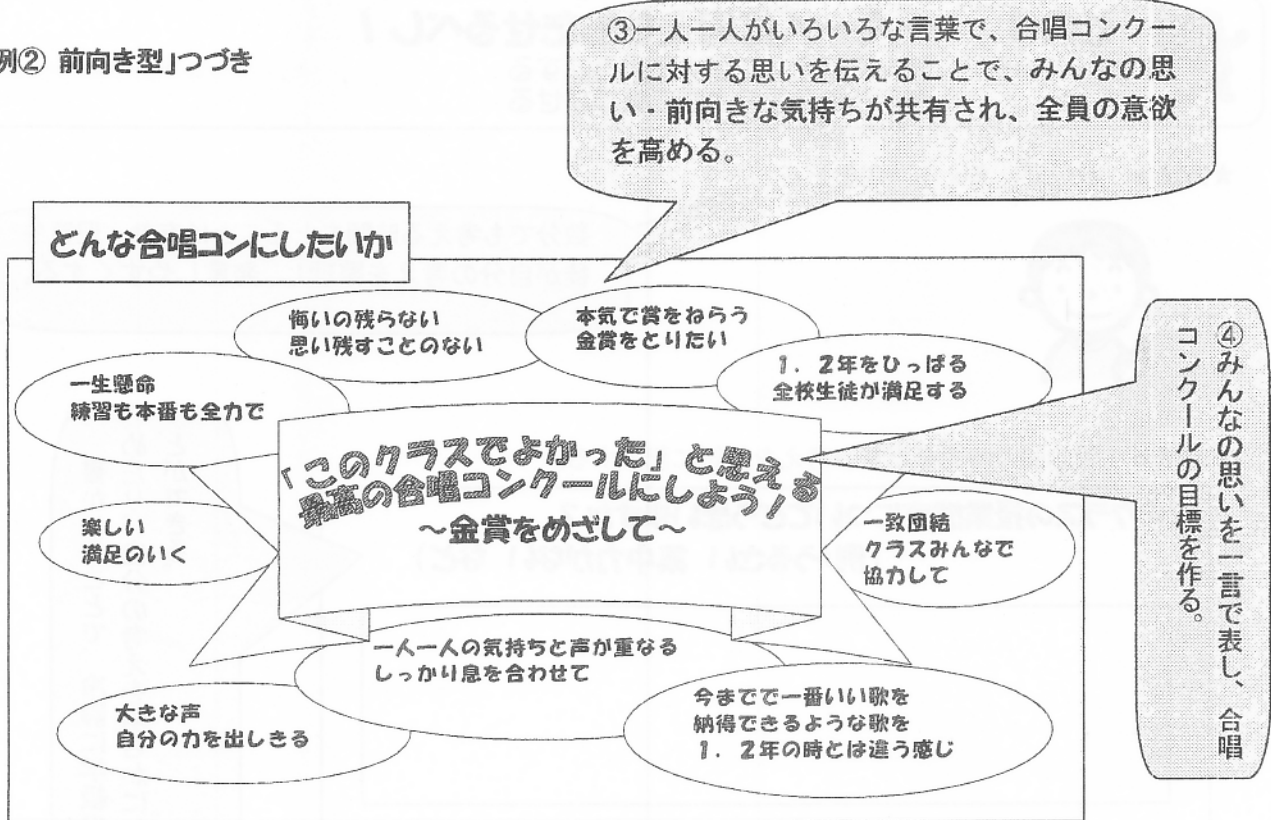 例② 前向き型」つづき
③一人一人がいろいろな言葉で、合唱コンクー
ルに対する思いを伝えることで、みんなの思
い・前向きな気持ちが共有され、全員の意欲
を高める。
どんな合唱コンにしたいか
悔いの残らない
思い残すことのない
本気で賞をねらう
金賞をとりたい
1．2年をひっぱる
全校生徒が満足する
一生懸命
練習も本番も全力で
「このクラスでよかった」と思える
最高の合唱コンクールにしよう！
～金賞をめざして～
④みんなの思いを一言で表し、合唱
コンクールの目標を作る。
楽しい
満足のいく
一致団結
クラスみんなで
協力して
一人一人の気持ちと声が重なる
しっかり息を合わせて
大きな声
自分の力を出しきる
今までで一番いい歌を
納得できるような歌を
1．2年の時とは違う感じ